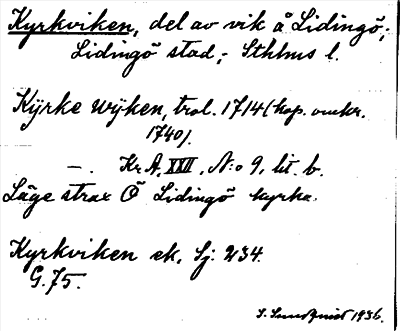 Kyrkviken, del av vik å Lidingö,
Lidingö stad, Sthlms l.
Kÿrke wijken, trol. 1714 (kop. omkr.
1740).
—. Kr A, XXII, N:o 9, lit. b.
Läge strax Ö Lidingö kyrka.
Kyrkviken ek, Sj: 234.
G. 75.
S. Sundqvist 1936.